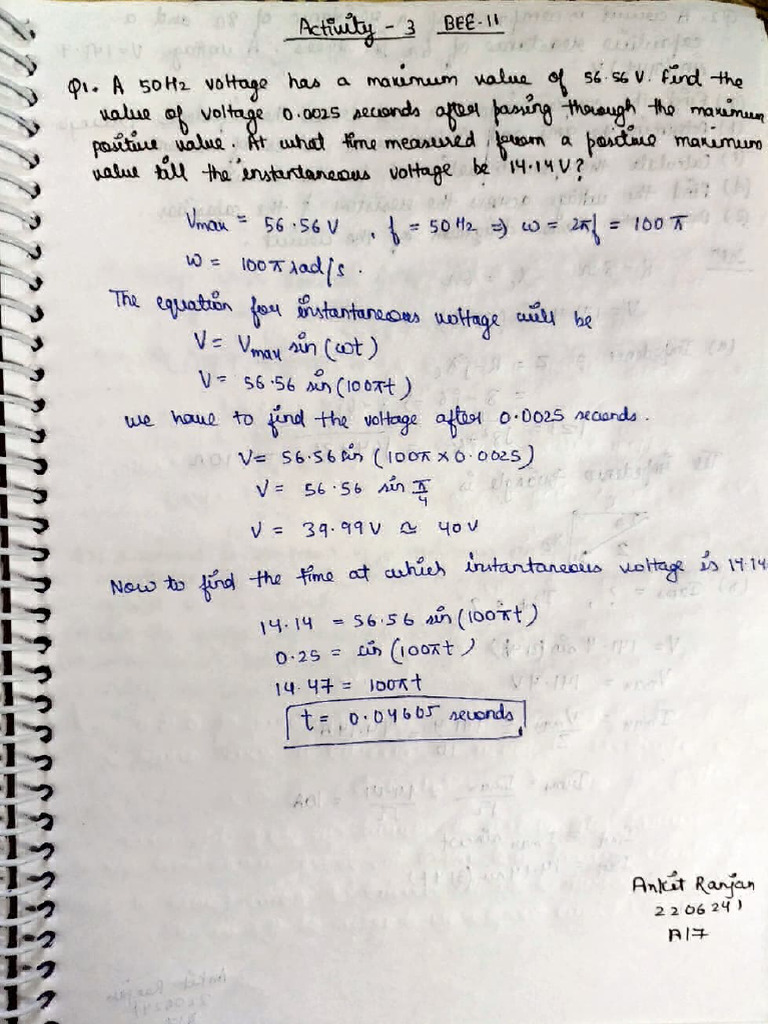 Activity - 3 BEE-11
Q1. A 50Hz voltage has a maximum value of 56.56 V. Find the
value of voltage 0.0025 seconds after passing through the maximum
positive value. At what time measured from a positive maximum
value till the instantaneous voltage be 14.14V?
Vmax = 56.56 V , f = 50 Hz => ω = 2πf = 100 π
ω = 100π rad/s.
The equation for instantaneous voltage will be
V = Vmax sin (ωt)
V = 56.56 sin (100πt)
we have to find the voltage after 0.0025 seconds.
V = 56.56 sin (100π × 0.0025)
V = 56.56 sin π/4
V = 39.99 V ≃ 40 V
Now to find the time at which instantaneous voltage is 14.14
14.14 = 56.56 sin (100πt)
0.25 = sin (100πt)
14.47 = 100πt
t = 0.04605 seconds
Ankit Ranjan
2206241
A17